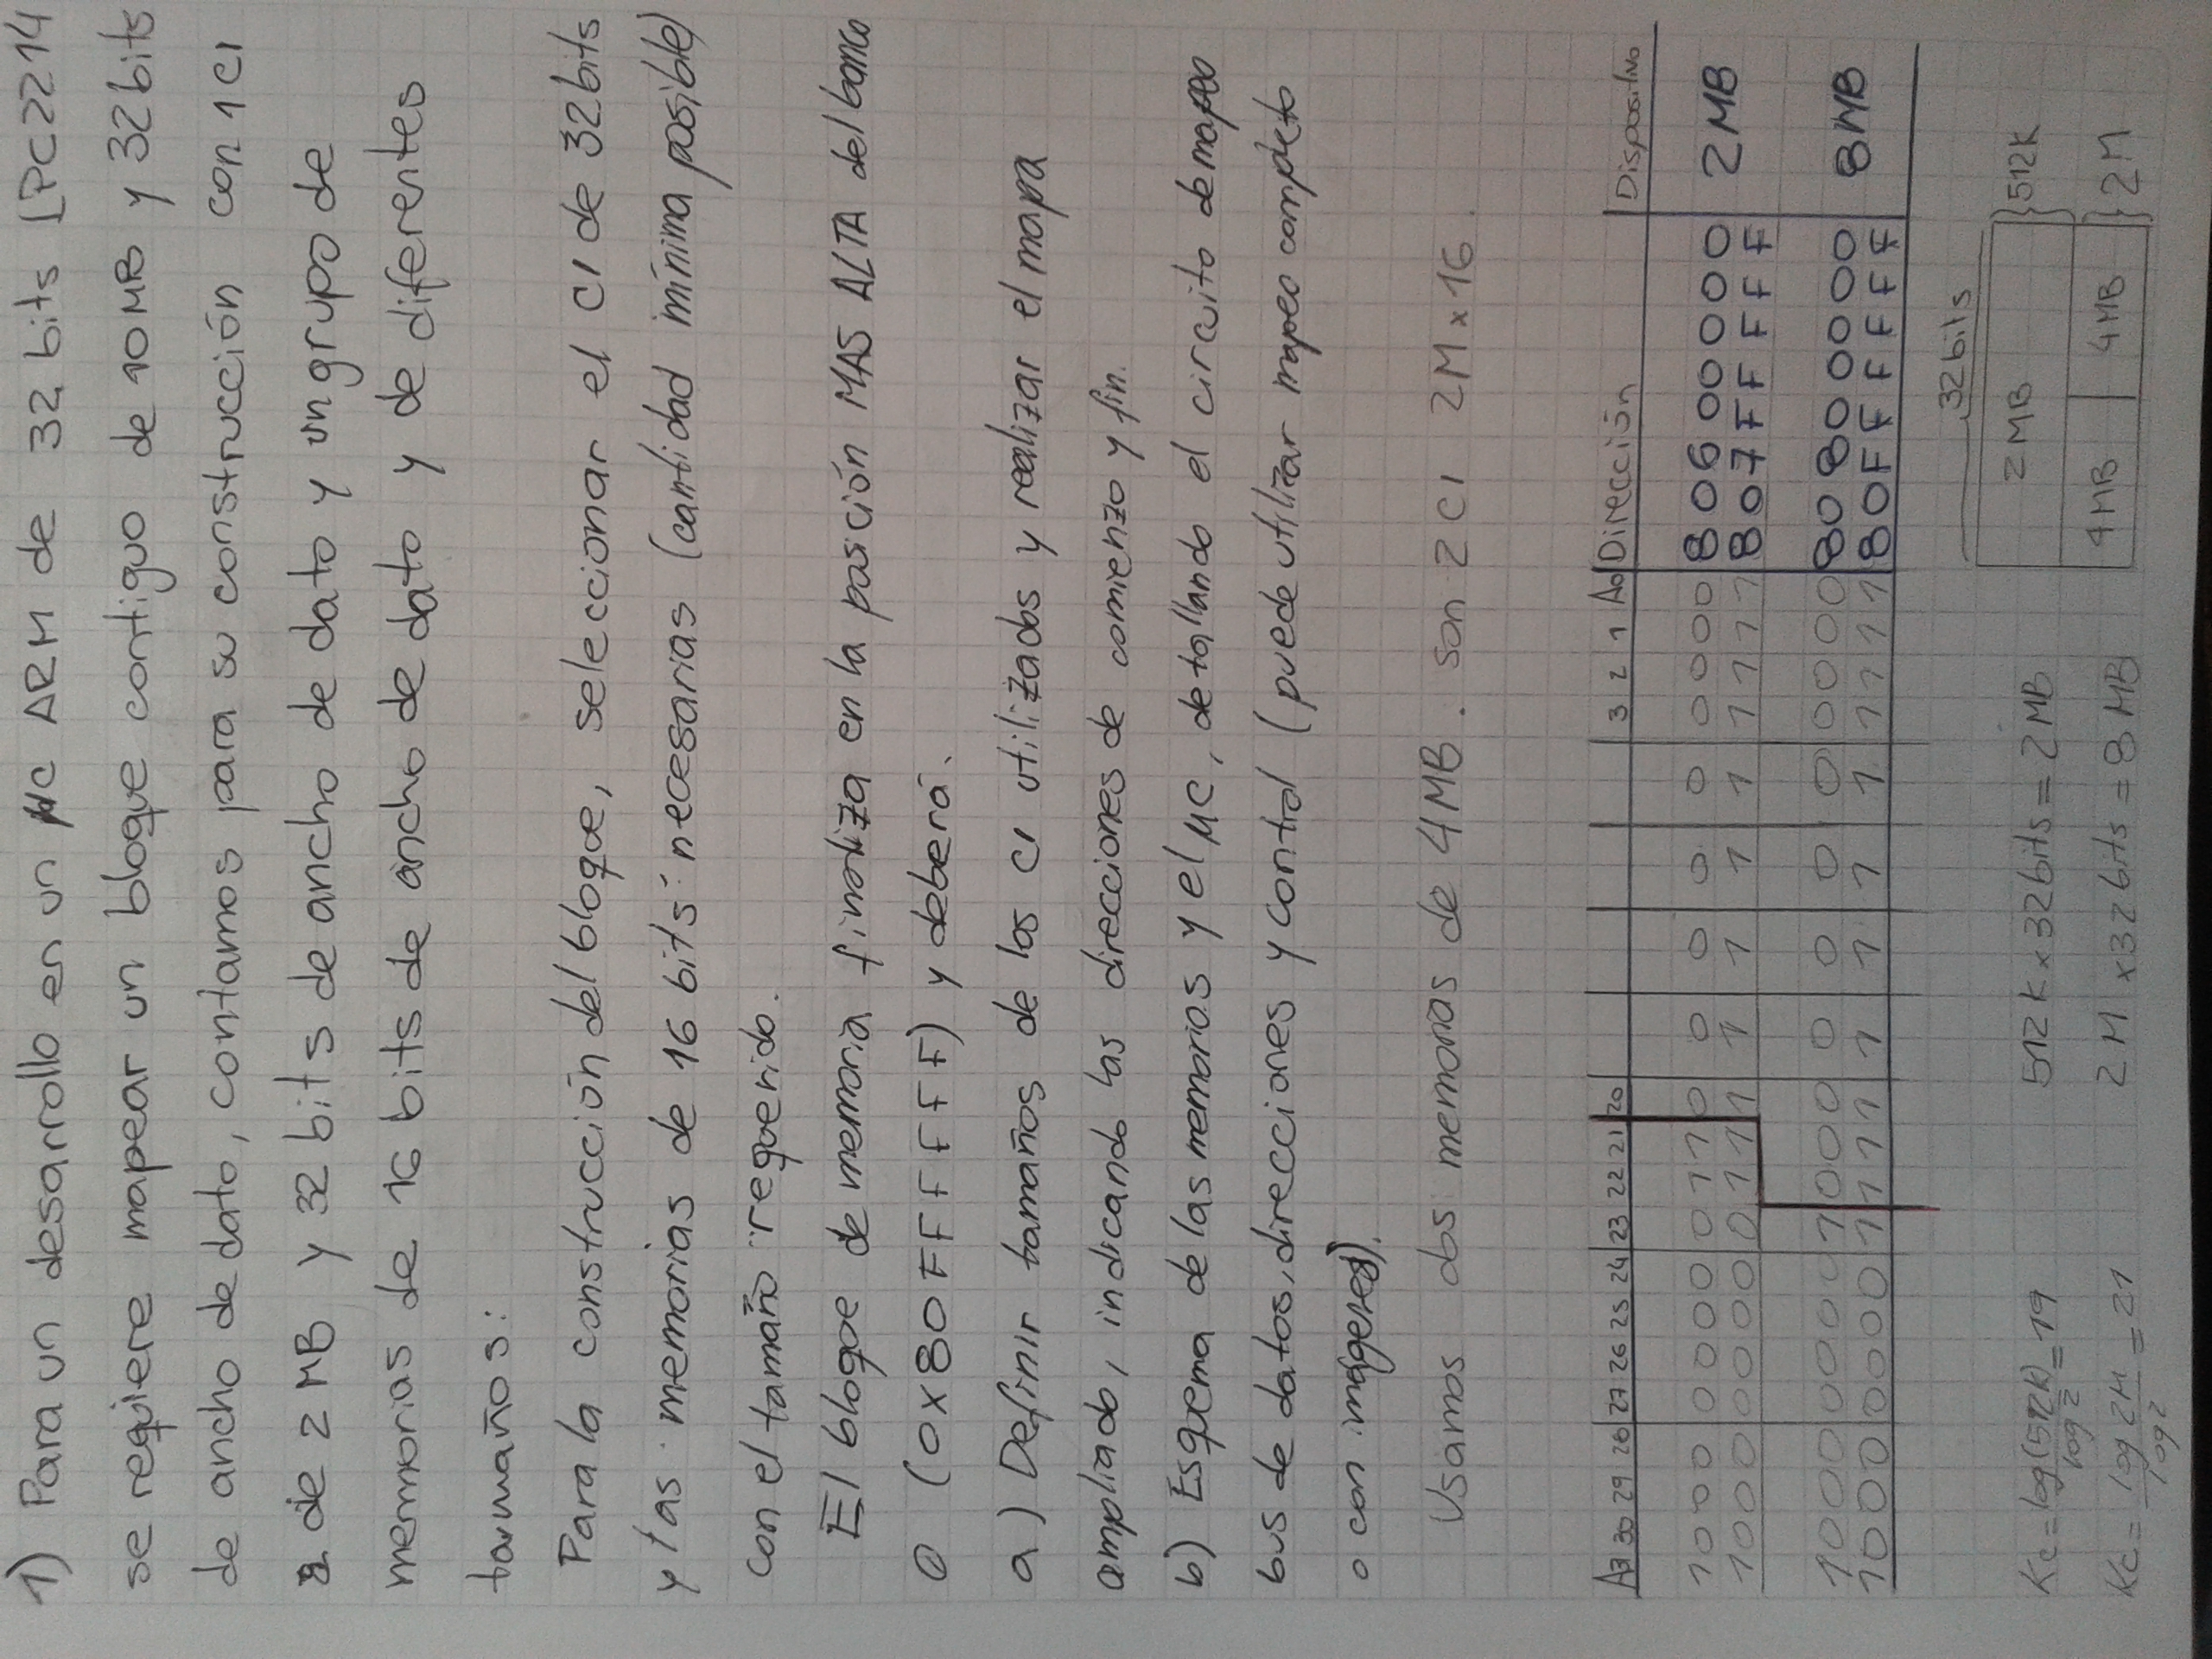 1) Para un desarrollo en un µC ARM de 32 bits LPC2214
se requiere mapear un bloque contiguo de 10MB y 32bits
de ancho de dato, contamos para su construcción con 1 CI
de 2 MB y 32 bits de ancho de dato y un grupo de
memorias de 16 bits de ancho de dato y de diferentes
tamaños:
Para la construcción del bloque, seleccionar el CI de 32bits
y las memorias de 16 bits necesarias (cantidad mínima posible)
con el tamaño requerido.
El bloque de memoria finaliza en la posición MAS ALTA del banco
0 (0x80FFFFFF) y deberá.
a) Definir tamaños de los CI utilizados y realizar el mapa
ampliado, indicando las direcciones de comienzo y fin.
b) Esquema de las memorias y el µC, detallando el circuito de mapeo
bus de datos, direcciones y control (puede utilizar mapeo completo
o con imagenes).
Usamos dos memorias de 4MB. son 2 CI 2M x 16.
A31 30 29 28 27 26 25 24 23 22 21 20 3 2 1 A0 Dirección Dispositivo
1 0 0 0 0 0 0 0 0 1 1 0 0 0 0 0 0 0 0 0 80600000 2MB
1 0 0 0 0 0 0 0 0 1 1 1 1 1 1 1 1 1 1 1 807FFFFF
1 0 0 0 0 0 0 0 1 0 0 0 0 0 0 0 0 0 0 0 80800000 8MB
1 0 0 0 0 0 0 0 1 1 1 1 1 1 1 1 1 1 1 1 80FFFFFF
32bits
Kc = log(512K)/log 2 = 19 512 K x 32bits = 2 MB 2 MB } 512K
Kc = log 2M/log 2 = 21 2 M x 32 bits = 8 MB 4MB 4MB } 2 M